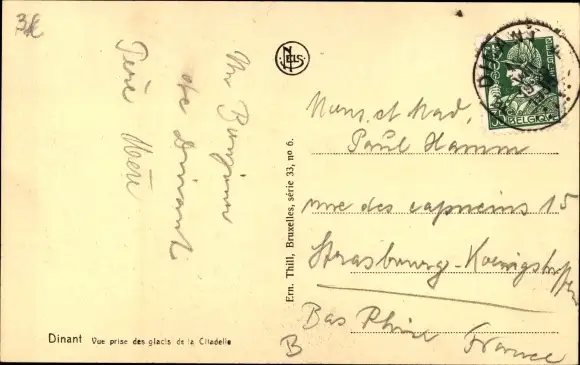 3€
Un Bonjour
de Dinant
Père
Dinant Vue prise des glacis de la Citadelle
NELS
Ern. Thill, Bruxelles, série 33, no 6.
DINANT
BELGIQUE
Mons. et Mad.
Paul Hamm
rue des capucins 15
Strasbourg-Koenigshoffen
Bas Rhin France
B